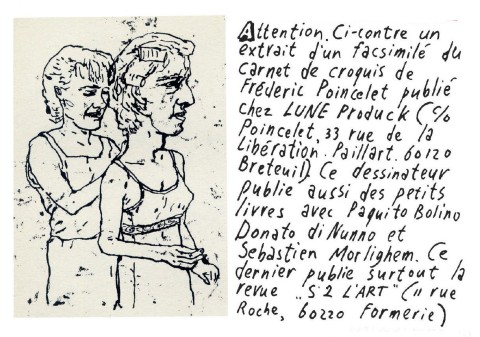 Attention. Ci-contre un
extrait d'un facsimilé du
carnet de croquis de
Fréderic Poincelet publié
chez LUNE Produck (c/o
Poincelet, 33 rue de la
Libération. Paillart. 60120
Breteuil) Ce dessinateur
publie aussi des petits
livres avec Paquito Bolino
Donato di Nunno et
Sebastien Morlighem. Ce
dernier publie surtout la
revue „S 2 L'ART" (11 rue
Roche, 60220 Formerie)